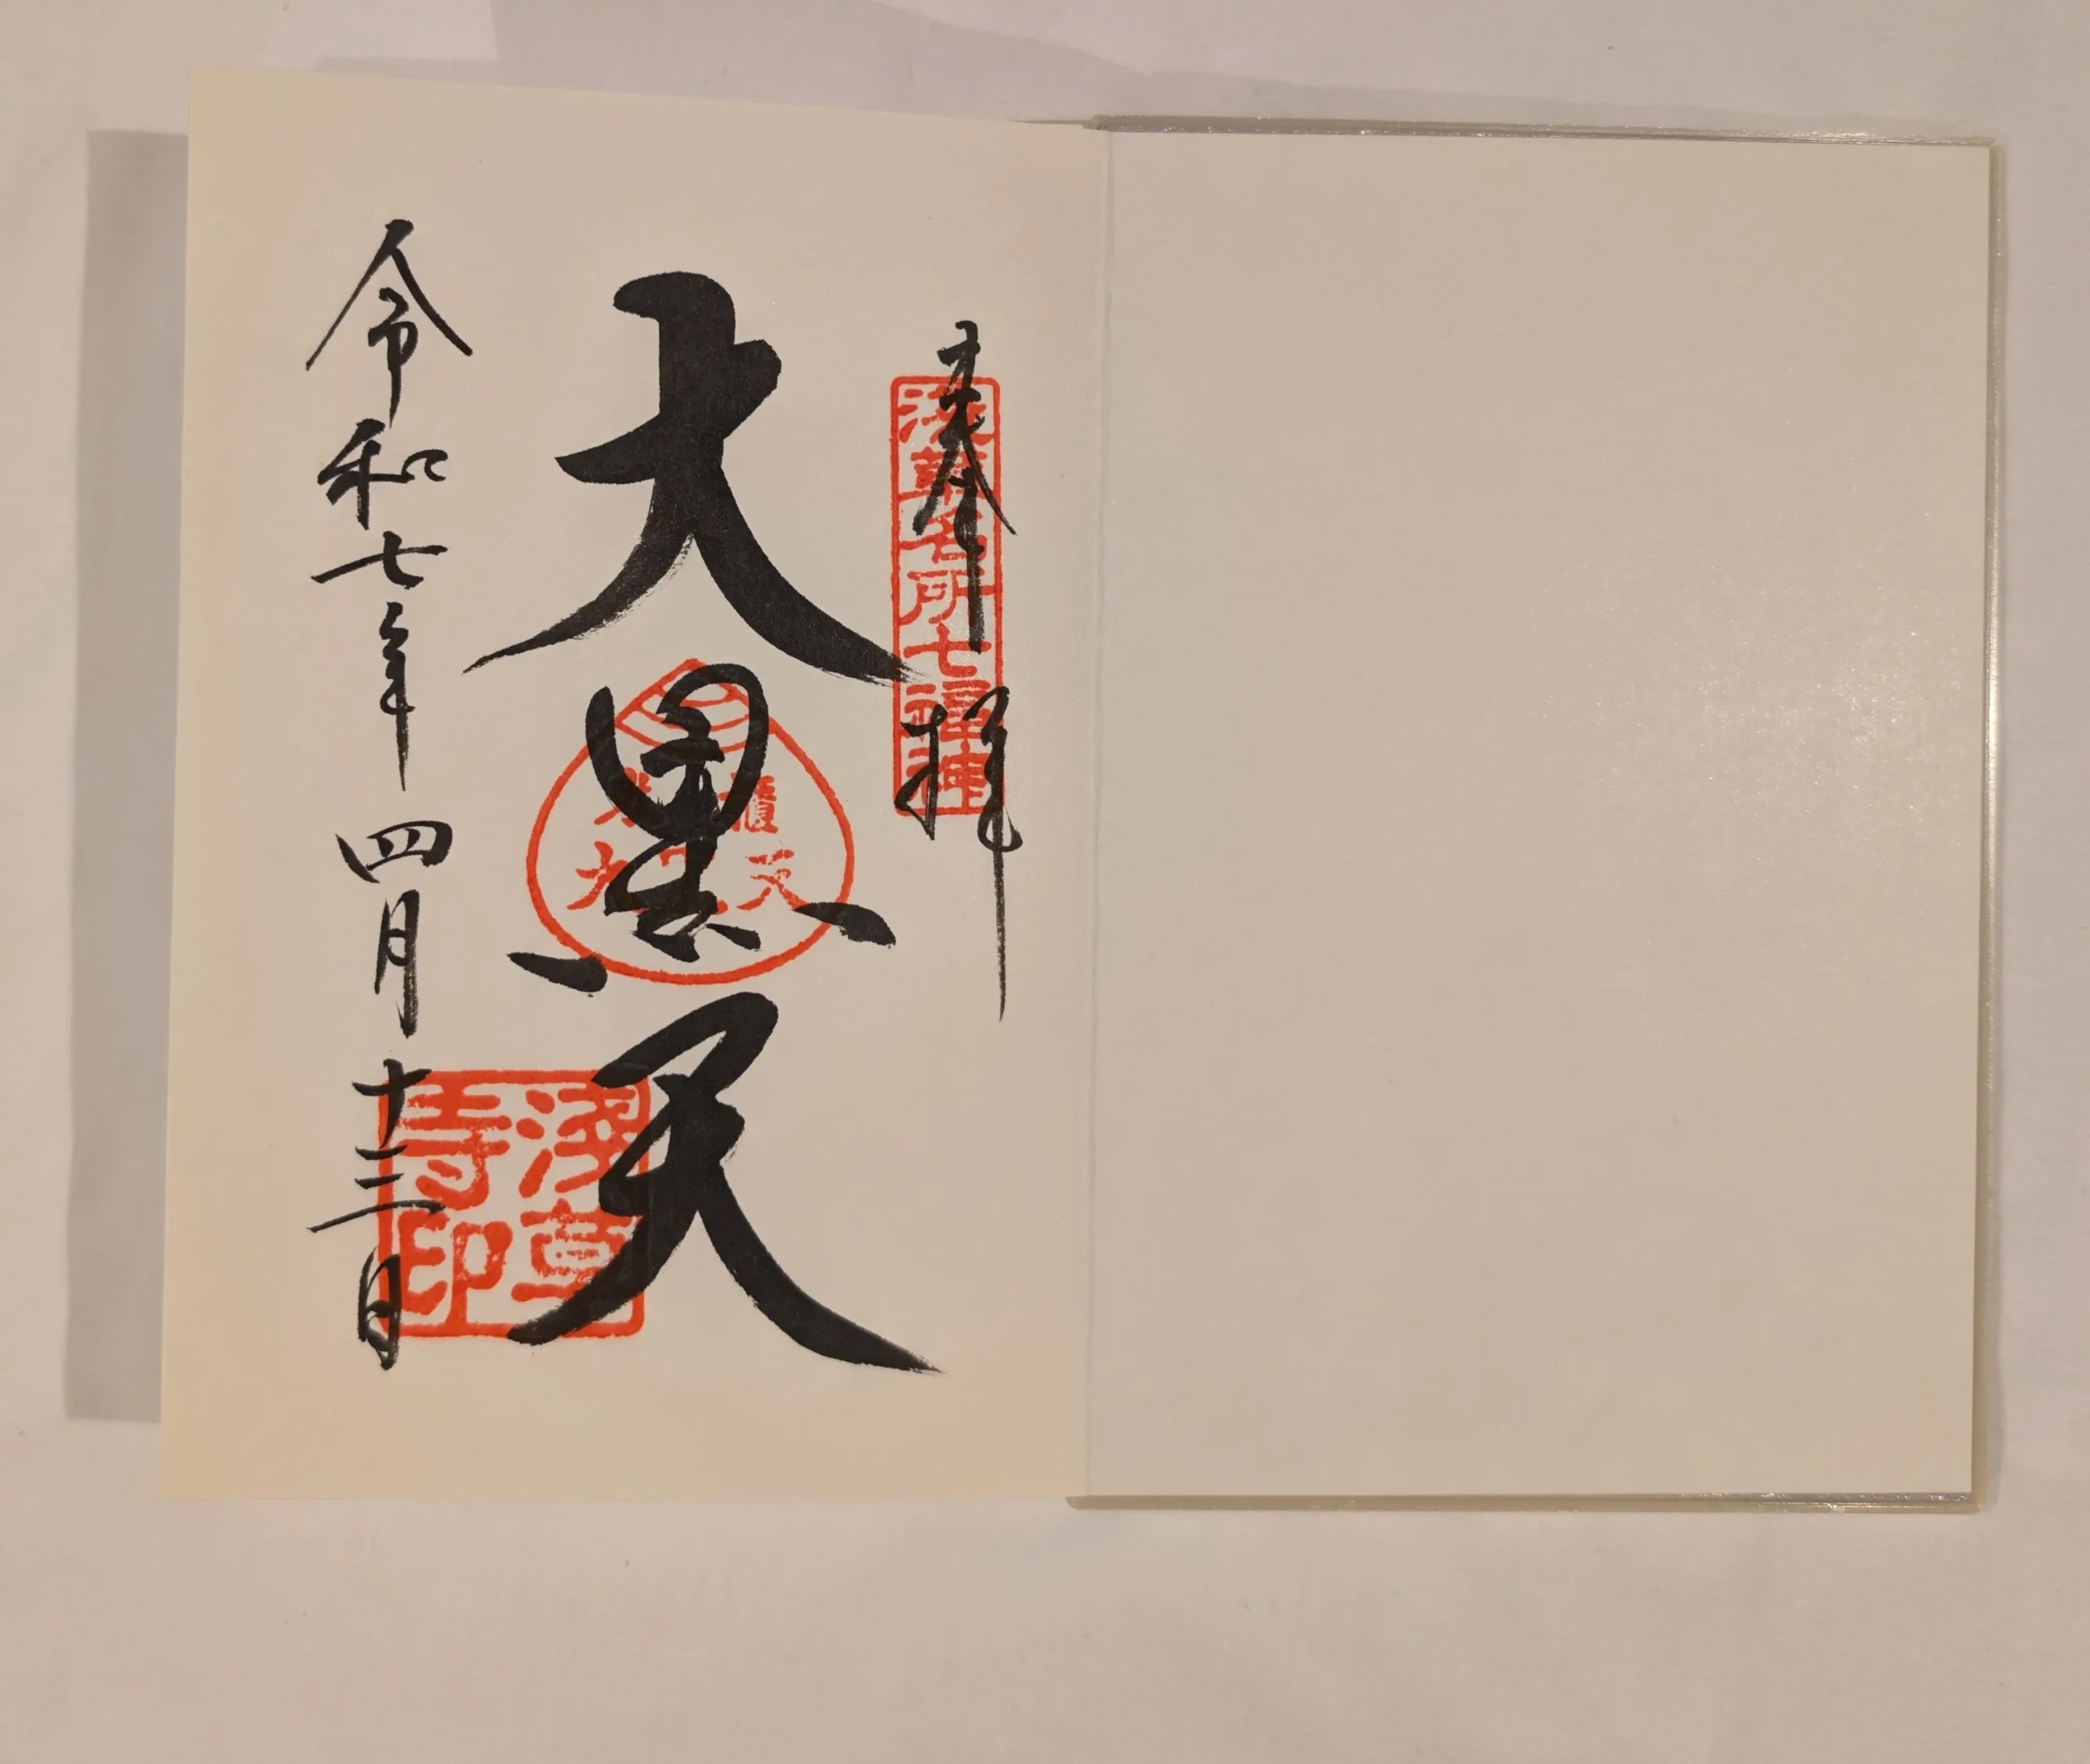 奉拝
浅草名所七福神
大黒天
淺草寺印
令和七年四月十三日